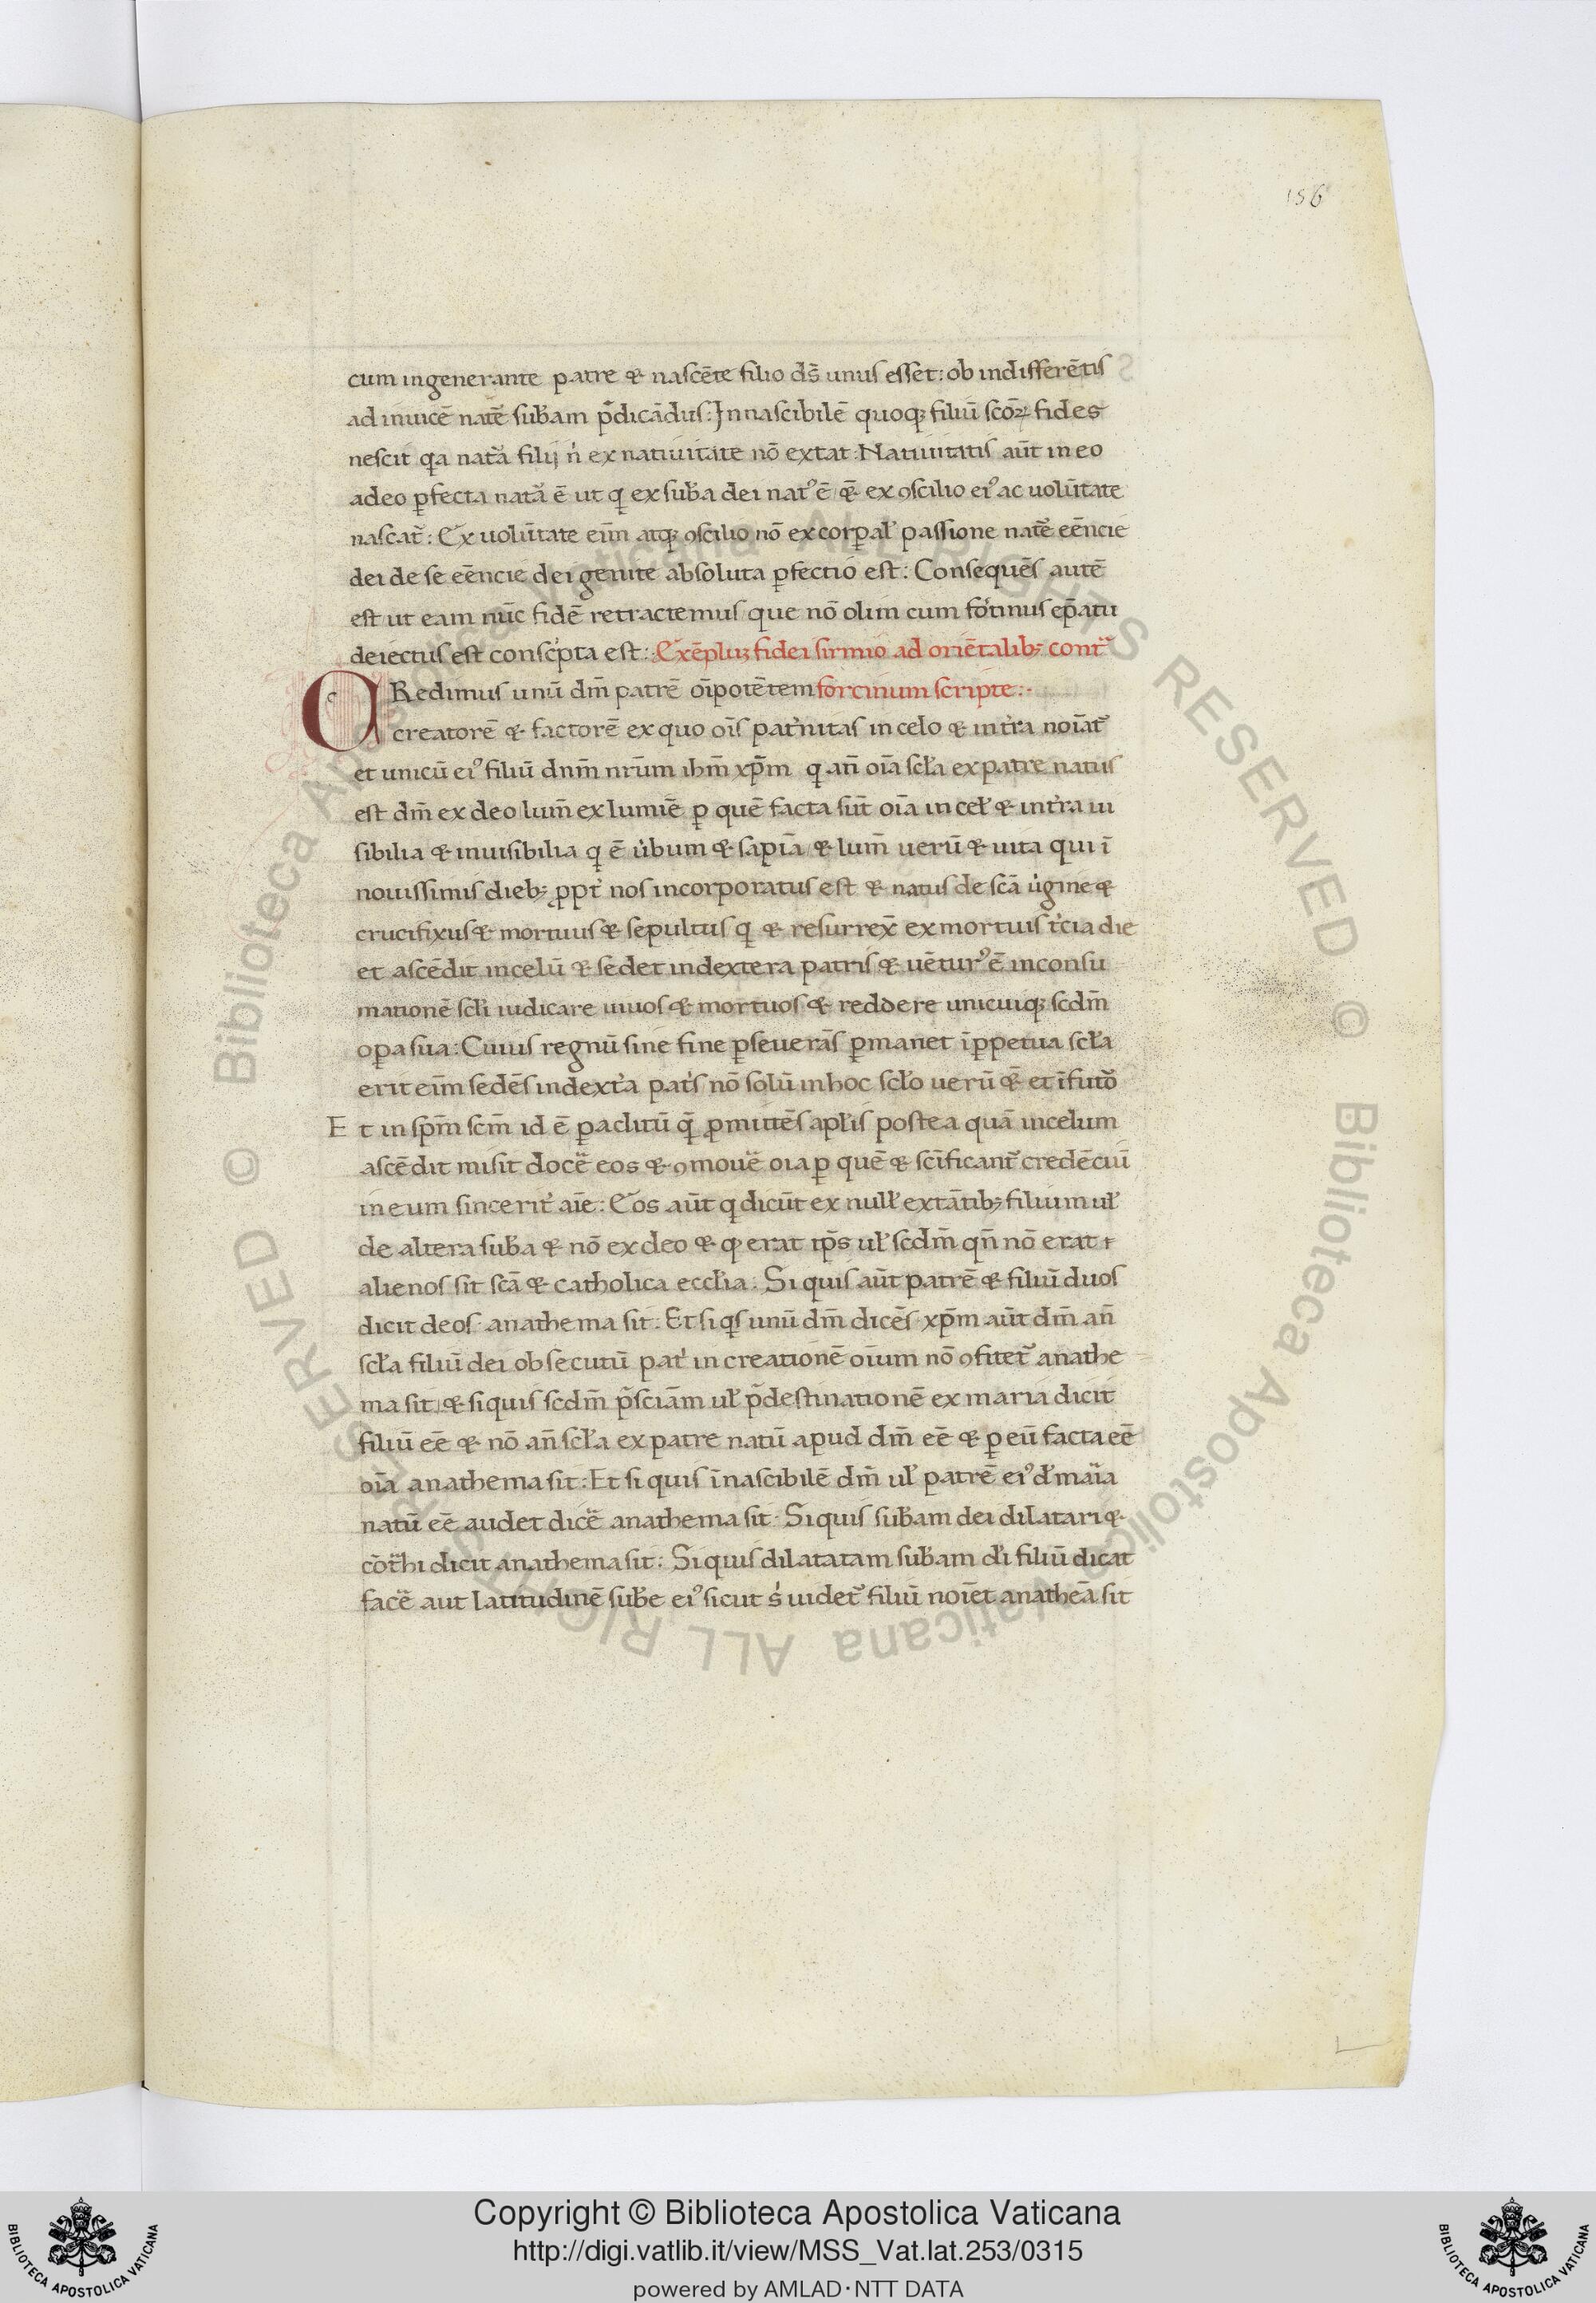 156
cum ingenerante patre & nascēte filio ds̄ unus esset: ob indifferētis
ad inuicē natē sub̄am p̄dicādus: Innascibilē quoq; filiū scōꝝ fides
nescit qa nat̄a filij n̄ ex natiuitate nō extat: Natiuitatis aūt in eo
adeo ꝑfecta nat̄a ē ut q ex sub̄a dei natꝰ ē & ex ꝯscilio eiꝰ ac uolūtate
nascat̄: Ex uolūtate eīm atq; ꝯscilio nō ex corꝑal̄ passione nat̄e eēncie
dei de se eēncie dei genite absoluta ꝑfectio est: Consequēs autē
est ut eam nūc fidē retractemus que nō olim cum fotinus ep̄atu
deiectus est conscp̄ta est: Exēpluꝫ fidei sirmio ad oriētalibꝫ cont̄
CRedimus unū dm̄ patrē oīpotētem forcinum scripte:
creatorē & factorē ex quo oīs pat̓nitas in celo & in t̓ra noīat̄
et unicū eiꝰ filiū dnm̄ nrūm ihm̄ xp̄m q an̄ oīa scl̄a ex patre natus
est dm̄ ex deo lum̄ ex lumīe ꝑ quē facta sūt oīa in cel̄ & in t̓ra ui
sibilia & inuisibilia q ē u̓bum & sapīa & lum̄ uerū & uita qui ī
nouissimis diebꝫ ꝓpt̓ nos incorporatus est & natus de scā u̓gine &
crucifixus & mortuus & sepultus q & resurrex̄ ex mortuis t̓cia die
et ascēdit in celū & sedet in dextera patris & uēturꝰ ē in consu
mationē scl̄i iudicare uiuos & mortuos & reddere unicuiq; scdm̄
oꝑa sua: Cuius regnū sine fine ꝑseuerās ꝑmanet ī ꝑpetua scl̄a
erit eīm sedēs in dext̓a pat̓s nō solū in hoc scl̄o uerū & et ī fut̄o
Et in spm̄ scm̄ id ē ꝑaclitū q̄ ꝓmittēs apl̄is postea quā in celum
ascēdit misit docē eos & ꝯmouē oīa ꝑ quē & scīficant̄ credēciū
in eum sincerit̓ aīe: Eos aūt q dicūt ex null̄ extātibꝫ filium ul̄
de altera sub̄a & nō ex deo & qꝫ erat tp̄s ul̄ scdm̄ qn̄ nō erat
alienos sit scā & catholica eccl̄ia: Si quis aūt patrē & filiū duos
dicit deos anathema sit: Et si qs unū dm̄ dicēs xp̄m aūt dm̄ an̄
scl̄a filiū dei obsecutū pat̓ in creationē oīum nō ꝯfitet̄ anathe
ma sit & si quis scdm̄ p̄scīam ul̄ p̄destinationē ex maria dicit
filiū eē & nō an̄ scl̄a ex patre natū apud dm̄ eē & ꝑ eū facta eē
oīa anathema sit: Et si quis īnascibilē dm̄ ul̄ patrē eiꝰ d̄ maīa
natū eē audet dicē anathema sit: Si quis sub̄am dei dilatari &
cōt̄hi dicit anathema sit: Si quis dilatatam sub̄am d̄i filiū dicat
facē aut latitudinē sub̄e eiꝰ sicut s̓ uidet̄ filiū noīet anatheā sit
Copyright © Biblioteca Apostolica Vaticana
http://digi.vatlib.it/view/MSS_Vat.lat.253/0315
powered by AMLAD·NTT DATA